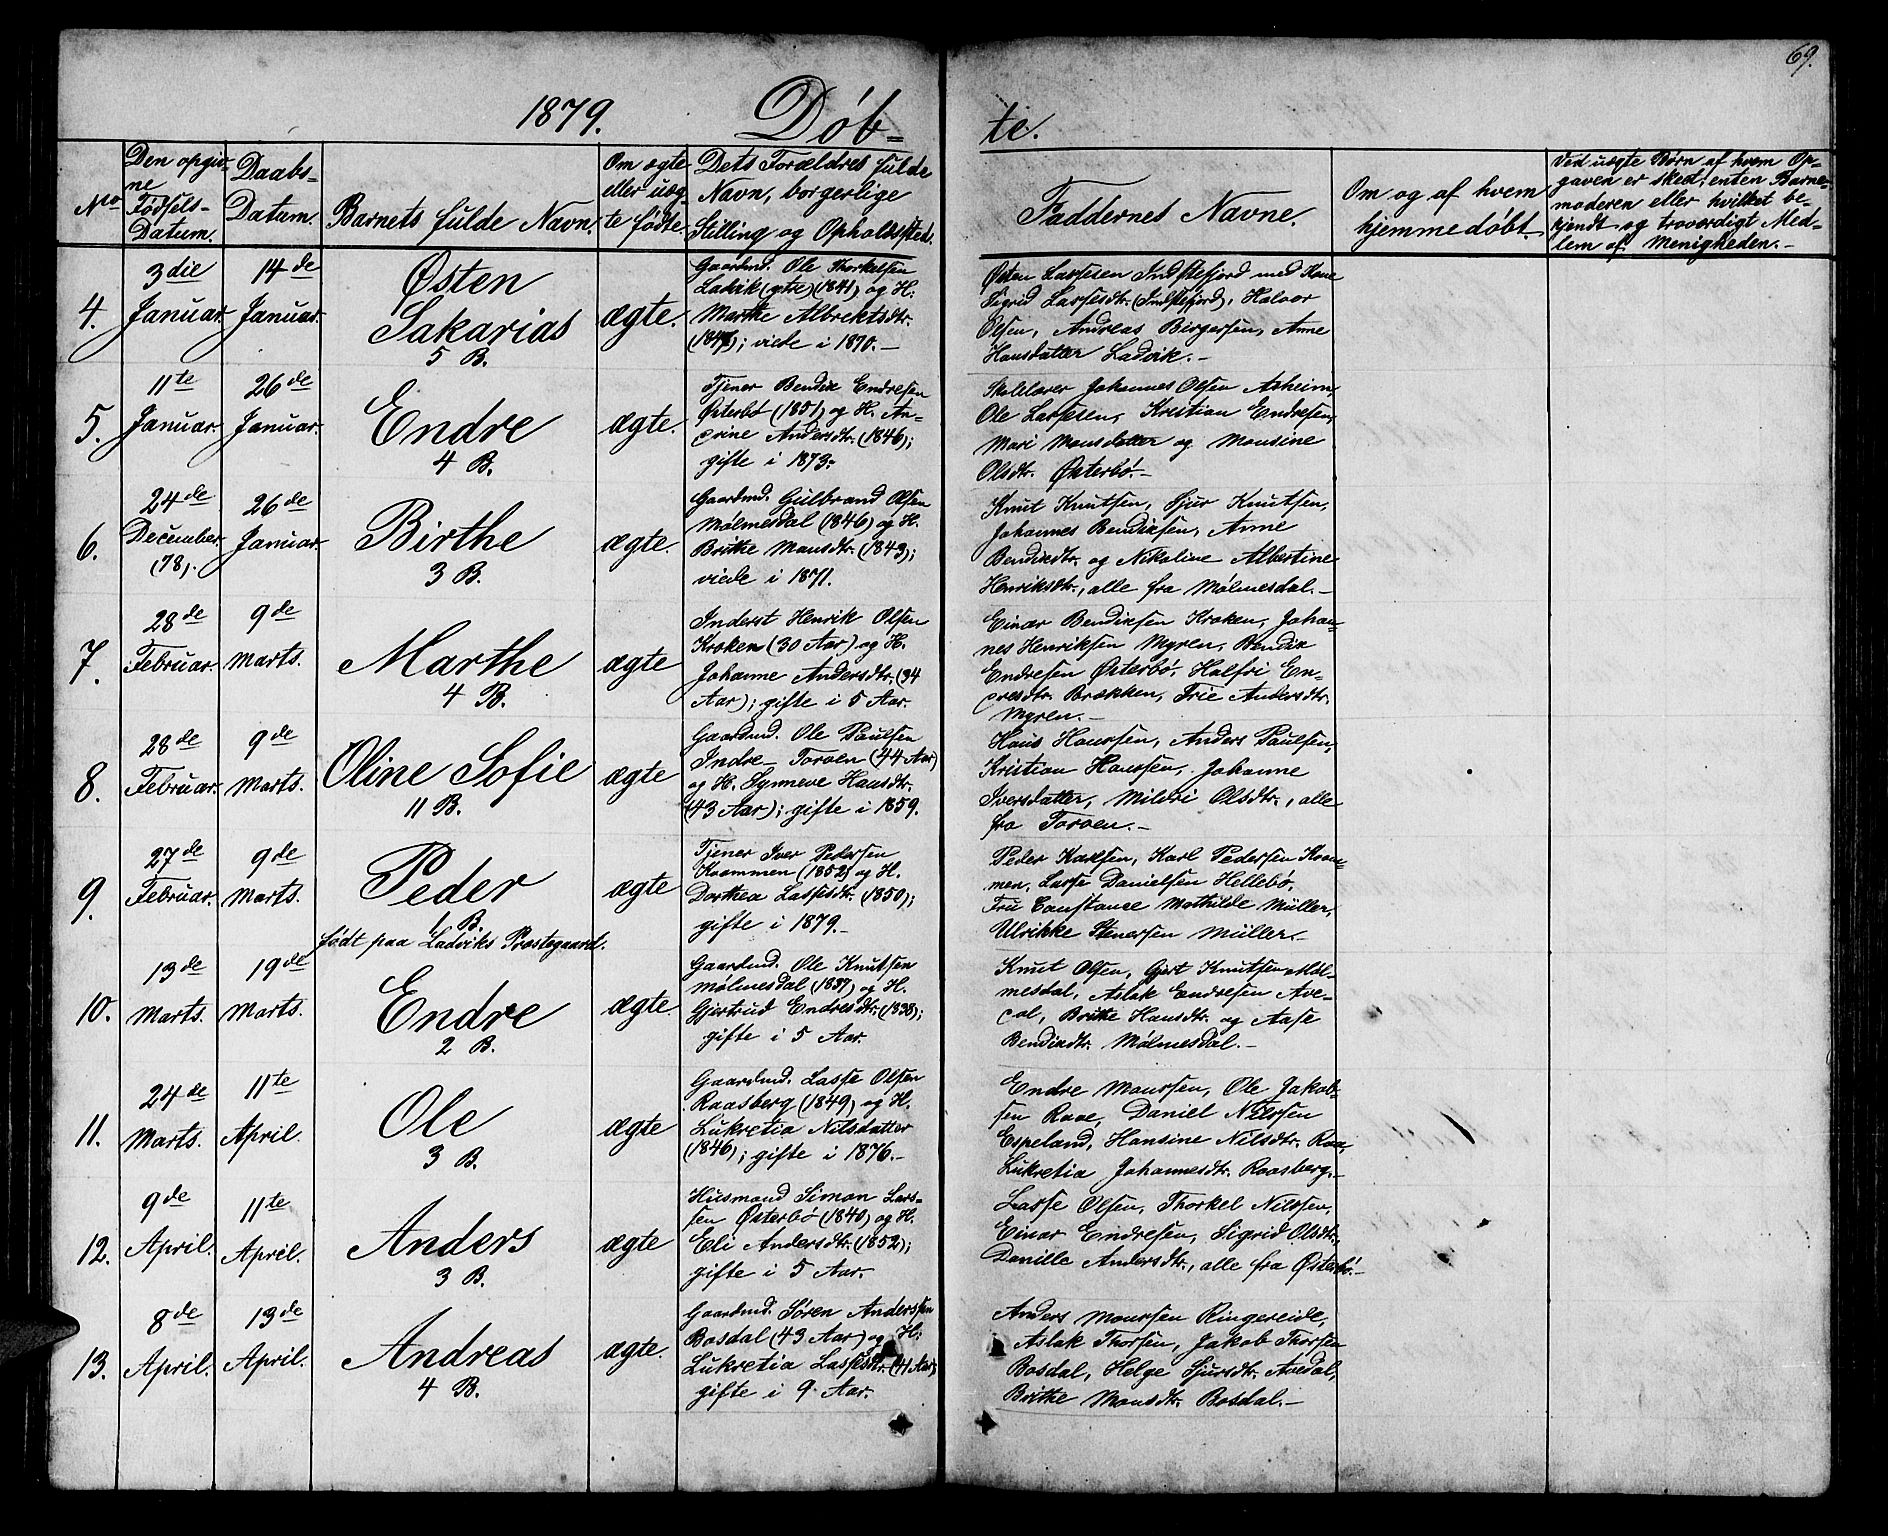 69.
1879. Døb-
te.
No
Den opgiv-
ne
Fødsels-
Datum.
Daabs-
Datum.
Barnets fulde Navn.
Om ægte
eller uæg-
te fødte.
Dets Forældres fulde
Navn, borgerlige
Stilling og Opholdssted.
Faddernes Navne.
Om og af hvem
hjemmedøbt.
Ved uægte Børn af hvem Op-
gaven er skeet, enten Barne-
moderen eller hvilket be-
kjendt og troværdigt Med-
lem af Menigheden.-
4.
3die
Januar.
14de
Januar.
Østen
Sakarias
5 B.
ægte.
Gaardmd. Ole Thorkelsen
Ladvik (ytre) (1841) og H:
Marthe Albrektsdtr.
viede i 1870.-
Østen Lassesen Indstefjord med Kone
Sigrid Lassesdtr. (Indstefjord), Halvor
Olsen, Andreas Birgersen, Anne
Hansdatter Ladvik.-
5.
11te
Januar.
26de
Januar.
Endre
4 B.
ægte.
Tjener Bendix Endresen
Østerbø (1851) og H. An-
drine Andersdtr. (1846);
gifte i 1873.
Skolelærer Johannes Olsen Asheim,
Ole Lassesen, Kristian Endresen,
Mari Monsdatter og Monsine
Olsdtr. Østerbø.-
6.
24de
December
(78).
26de
Januar.
Birthe
3 B.
ægte.
Gaardmd. Gulbrand Olsen
Mølmesdal (1846) og H.
Brithe Monsdtr. (1843);
viede i 1871.
Knut Knutsen, Sjur Knutsen,
Johannes Bendixsen, Anne
Bendixdtr. og Nikoline Albertine
Henriksdtr., alle fra Mølmesdal.-
7.
28de
Februar.
9de
Marts.
Marthe
4 B.
ægte
Inderst Henrik Olsen
Kroken (30 Aar) og H.
Johanne Andersdtr. (34
Aar); gifte i 5 Aar.
Einar Bendixsen Kroken, Johan-
nes Henriksen Myren, Bendix
Endresen Østerbø, Halfri En-
dresdtr. Brækken, Frie Andersdtr.
Myren.-
8.
28de
Februar.
9de
Marts.
Oline Sofie
11 B.
ægte
Gaardmd. Ole Paulsen
Indre- Torven (44 Aar)
og H. Synneve Hansdtr.
(43 Aar); gifte i 1859.
Hans Hanssen, Anders Paulsen,
Kristian Hanssen, Johanne
Iversdatter, Mildri Olsdtr., alle
fra Torven.-
9.
27de
Februar.
9de
Marts.
Peder
1 B.
født paa Ladviks Præstegaard.
ægte
Tjener Iver Pedersen
Kvammen (1852) og H.
Dorthea Lassesdtr. (1850);
gifte i 1879.-
Peder Karlsen, Karl Pedersen Kvam-
men, Lasse Danielsen Hellebø,
Fru Constance Mathilde Müller,
Ulrikke Stenersen Müller.-
10.
13de
Marts.
19de
Marts.
Endre
2 B.
ægte.
Gaardmd. Ole Knutsen
Mølmesdal (1837) og H.
Gjertrud Endresdtr. (1838);
gifte i 5 Aar.
Knut Olsen, Gjert Knutsen Møl-
mesdal, Aslak Endresen Ave-
dal, Brithe Hansdtr. og Aase
Bendixdtr. Mølmesdal.-
11.
24de
Marts.
11te
April.
Ole
3 B.
ægte
Gaardmd. Lasse Olsen
Raasberg (1849) og H.
Lukretia Nilsdatter
(1846); gifte i 1876.-
Endre Monssen, Ole Jakob-
sen Raae, Daniel Nilssen
Espeland, Hansine Nilsdtr. Raa,
Lukretia Johannesdtr. Raasberg.-
12.
9de
April.
11te
April.
Anders
3 B.
ægte
Husmand Simon Lars-
sen Østerbø (1840) og H.
Eli Andersdtr. (1852);
gifte i 5 Aar.
Lasse Olsen, Thorkel Nilssen,
Einar Endresen, Sigrid Olsdtr.,
Danille Andersdtr., alle fra Østerbø.-
13.
8de
April.
13de
April.
Andreas
4 B.
ægte.
Gaardmd. Søren Anderssen
Bosdal (43 Aar) og H:
Lukretia Lassesdtr. (41 Aar),
gifte i 9 Aar.
Anders Monssen Ringereide,
Aslak Thorsen, Jakob Thorsen
Bosdal, Helge Sjursdtr. Avedal,
Brithe Monsdtr. Bosdal.-